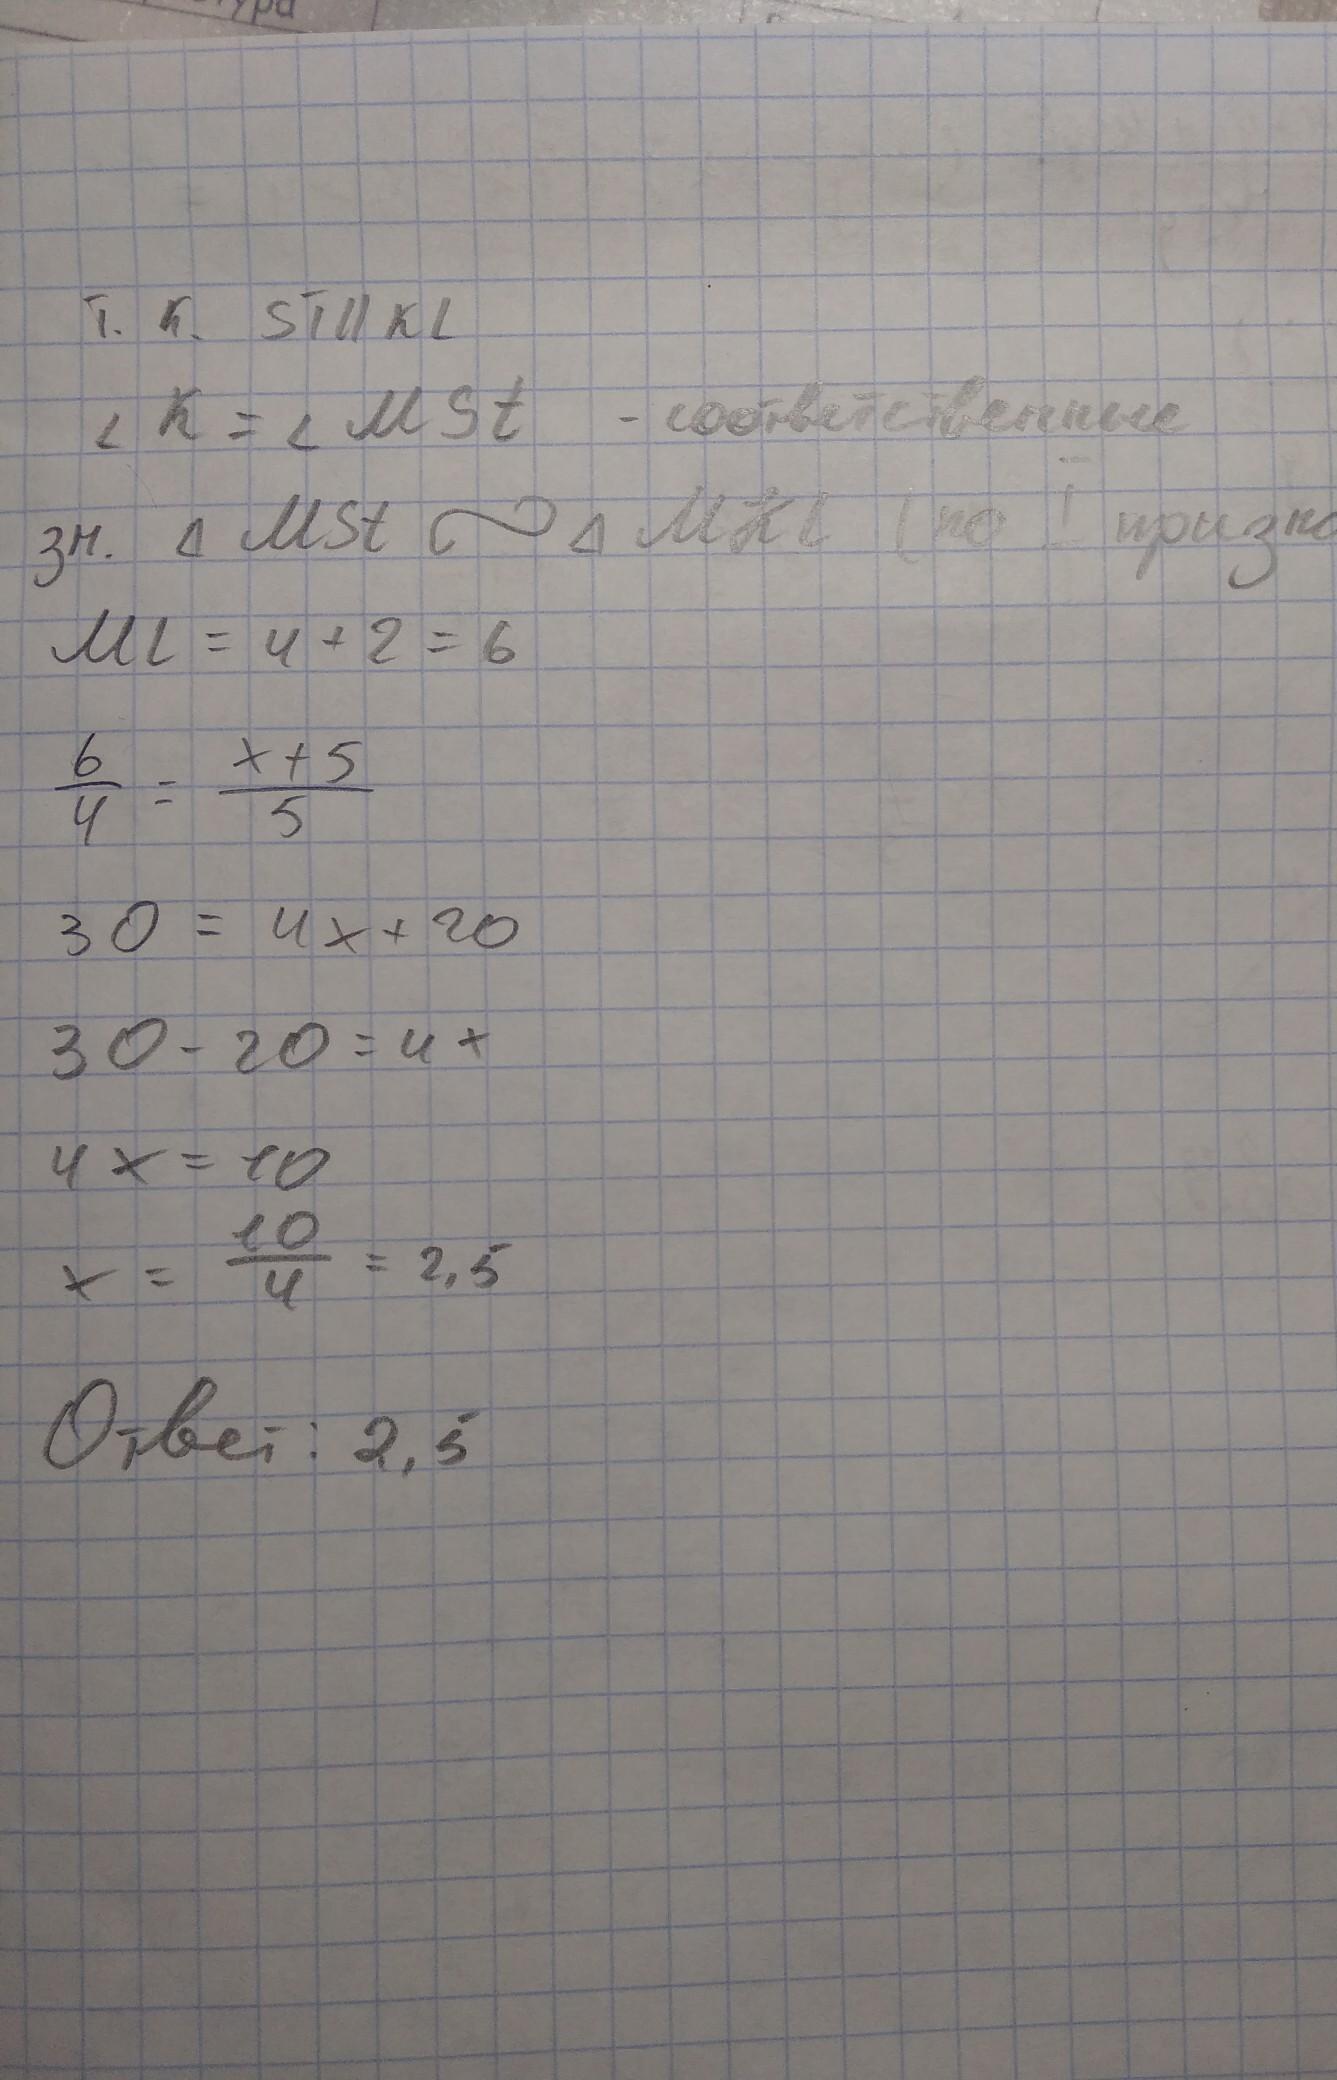 т. к. ST||KL
∠ K = ∠ MSt - соответственные
зн. Δ MSt ∾ Δ MKL (по I призна
ML = 4 + 2 = 6
6/4 = x+5/5
30 = 4x + 20
30 - 20 = 4x
4x = 10
x = 10/4 = 2,5
Ответ: 2,5